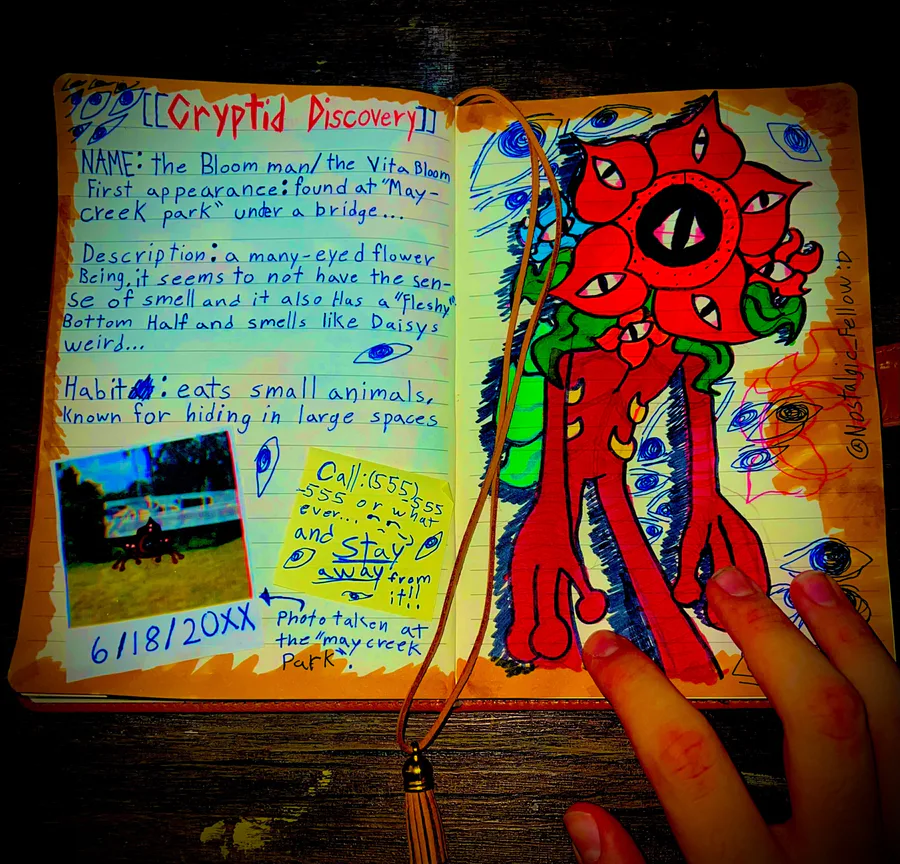 [[Cryptid Discovery]]
NAME: the Bloom man/the Vita Bloom
First appearance: found at "May-
creek park" under a bridge...
Description: a many-eyed flower
Being, it seems to not have the sen-
se of smell and it also Has a "fleshy"
Bottom Half and smells like Daisys
weird...
Habit: eats small animals,
known for hiding in large spaces
6/18/20XX
Call:(555)
-555-555
or what
ever...
and stay
away from
it!!
Photo taken at
the "may creek
Park".
@Nostalgic_Fellow:D